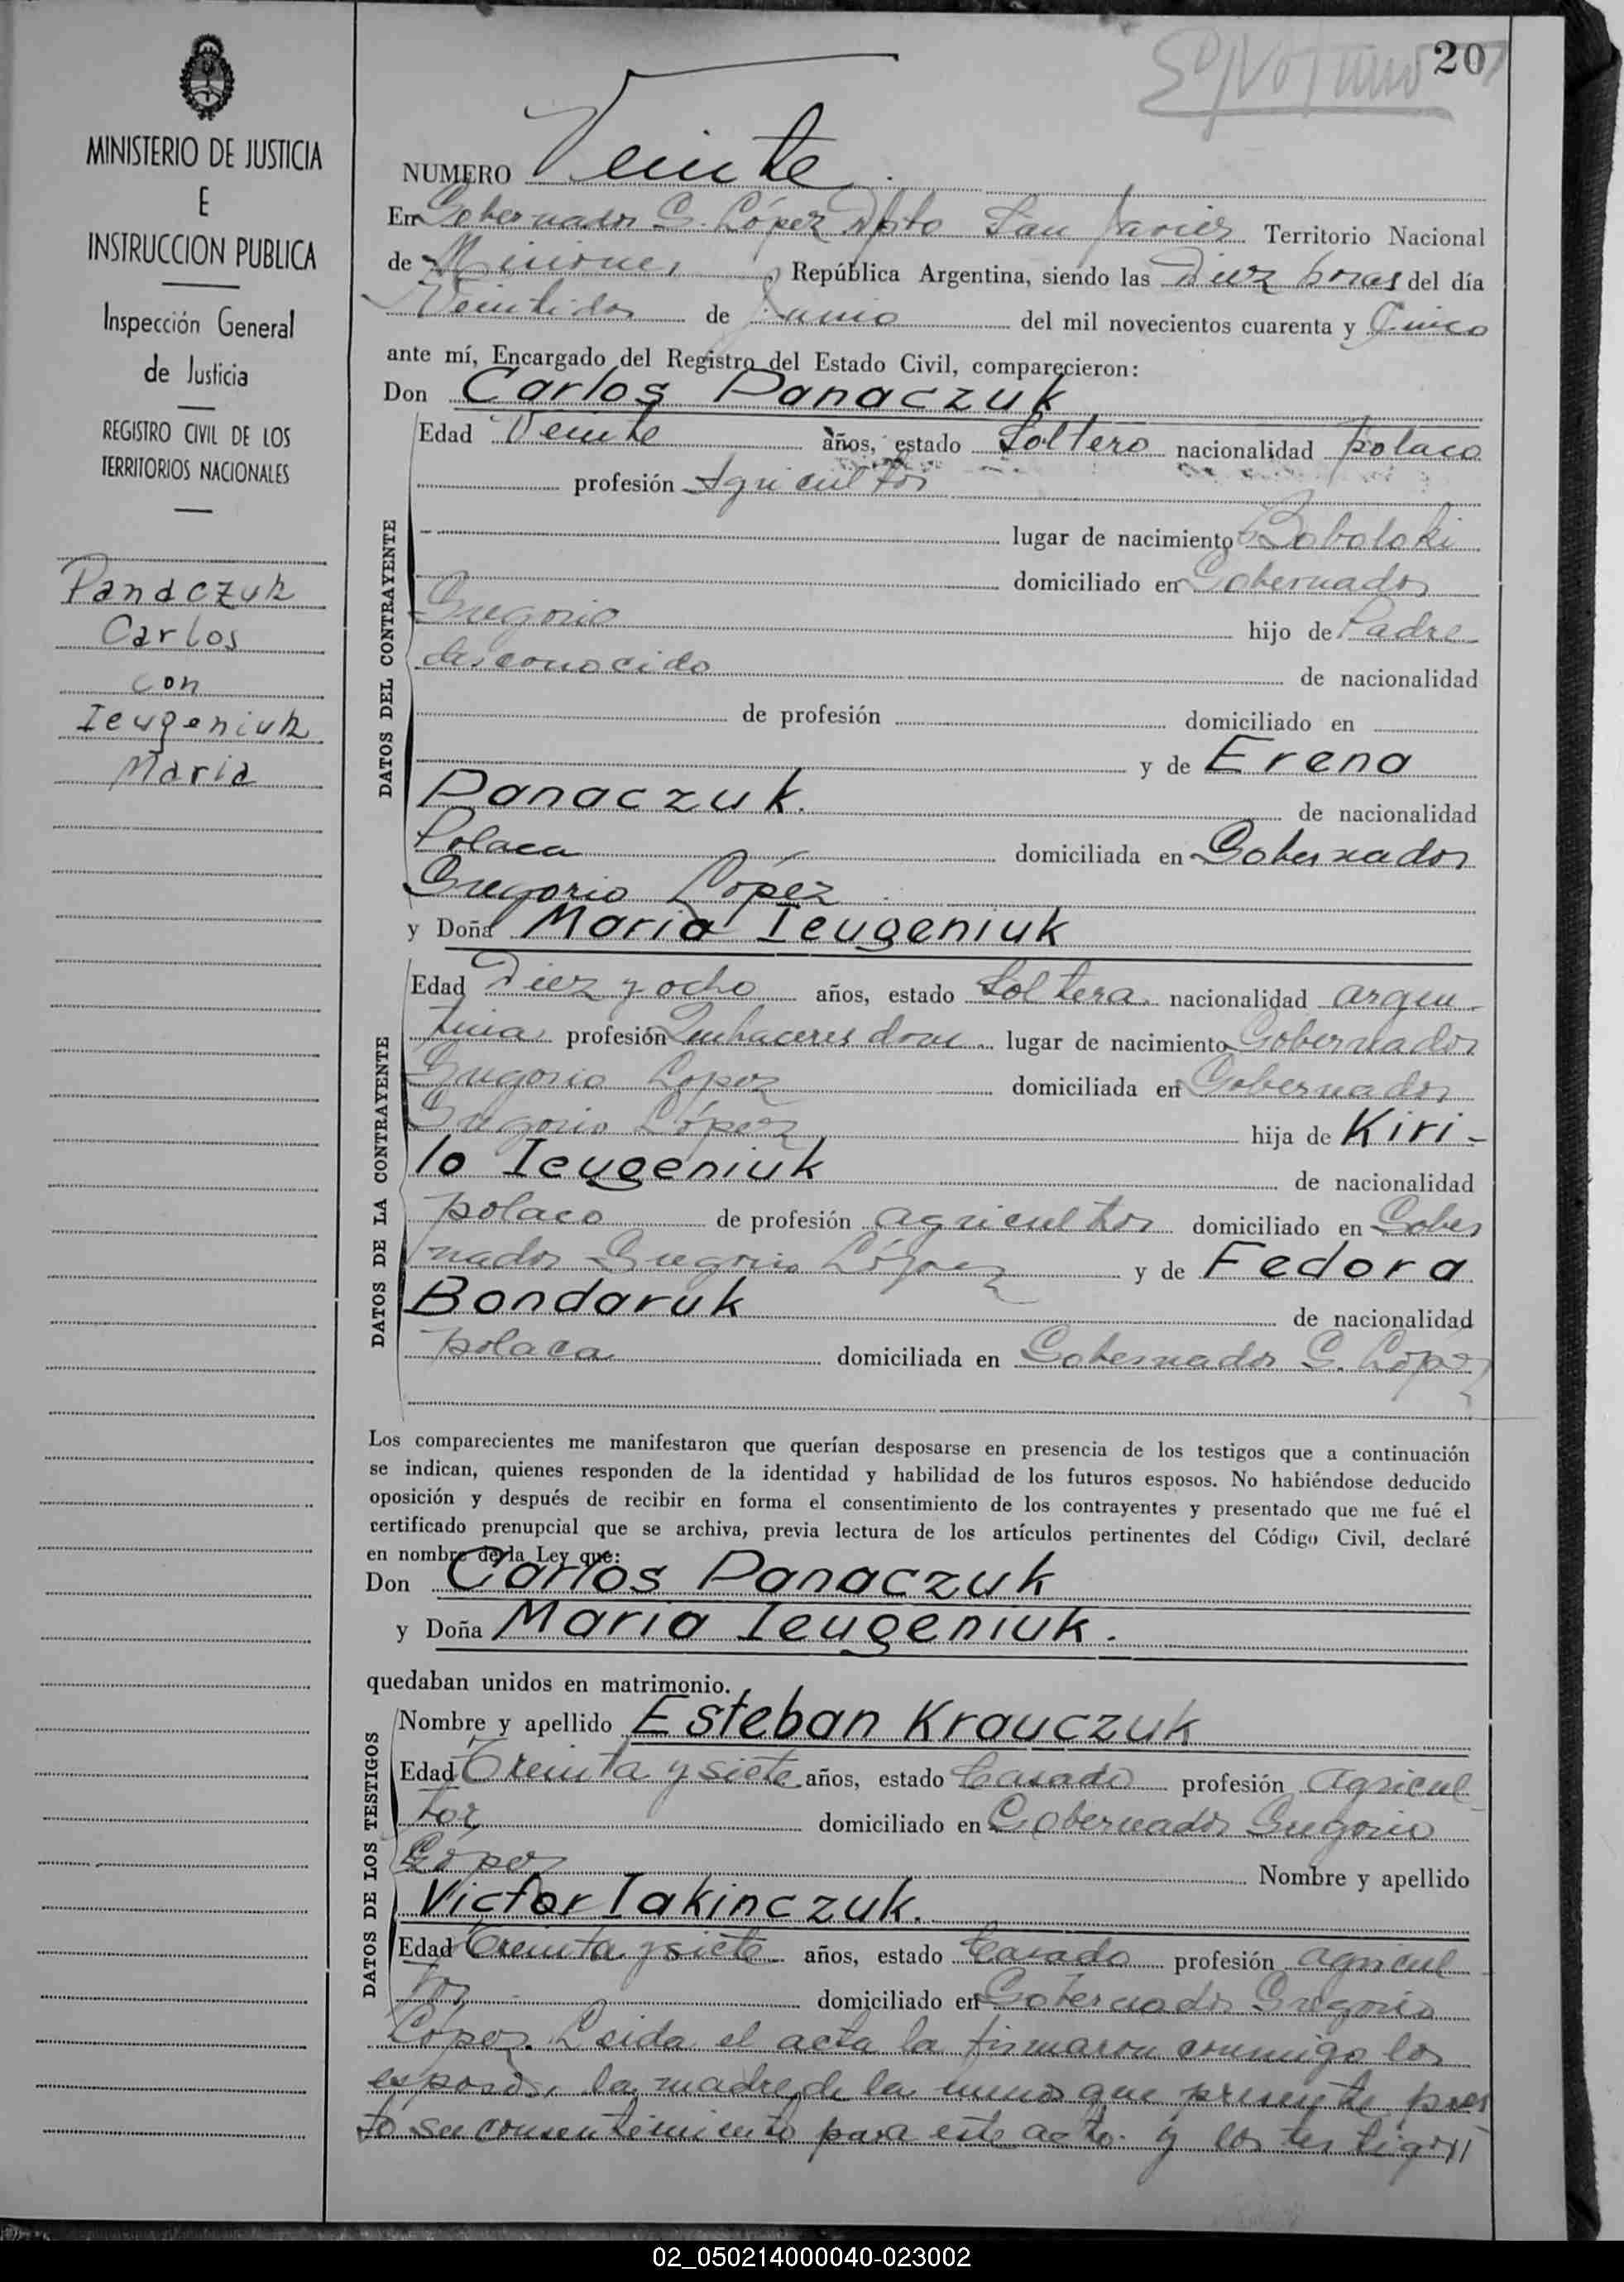 20
MINISTERIO DE JUSTICIA
E
INSTRUCCION PUBLICA
Inspección General
de Justicia
REGISTRO CIVIL DE LOS
TERRITORIOS NACIONALES
Panaczuk
Carlos
con
Ieugeniuk
Maria
NUMERO Veinte
En Gobernador G. López Dpto San Javier Territorio Nacional
de Misiones, República Argentina, siendo las Diez horas del día
Veintidos de Junio del mil novecientos cuarenta y Cinco
ante mí, Encargado del Registro del Estado Civil, comparecieron:
Don Carlos Panaczuk
DATOS DEL CONTRAYENTE
Edad Veinte años, estado Soltero nacionalidad polaco
profesión Agricultor
lugar de nacimiento Boboloki
domiciliado en Gobernador
Gregorio hijo de Padre
desconocido de nacionalidad
de profesión domiciliado en
y de Erena
Panaczuk. de nacionalidad
Polaca domiciliada en Gobernador
Gregorio López
y Doña Maria Ieugeniuk
DATOS DE LA CONTRAYENTE
Edad Diez y ocho años, estado Soltera. nacionalidad argen-
tina profesión Quehaceres dom. lugar de nacimiento Gobernador
Gregorio Lopez domiciliada en Gobernador
Gregorio López hija de Kiri-
lo Ieugeniuk de nacionalidad
polaco de profesión agricultor domiciliado en Gober
nador Gregorio López y de Fedora
Bondaruk de nacionalidad
polaca domiciliada en Gobernador G. López
Los comparecientes me manifestaron que querían desposarse en presencia de los testigos que a continuación
se indican, quienes responden de la identidad y habilidad de los futuros esposos. No habiéndose deducido
oposición y después de recibir en forma el consentimiento de los contrayentes y presentado que me fué el
certificado prenupcial que se archiva, previa lectura de los artículos pertinentes del Código Civil, declaré
en nombre de la Ley que:
Don Carlos Panaczuk
y Doña Maria Ieugeniuk.
quedaban unidos en matrimonio.
DATOS DE LOS TESTIGOS
Nombre y apellido Esteban Krauczuk
Edad Treinta y siete años, estado Casado profesión Agricul-
tor domiciliado en Gobernador Gregorio
López Nombre y apellido
Victor Iakinczuk.
Edad Treinta y siete años, estado Casado profesión agricul-
tor domiciliado en Gobernador Gregorio
López. Leida el acta la firmaron conmigo los
esposos, la madre de la menor que presente pres
tó su consentimiento para este acto. y los testigos
02_050214000040-023002